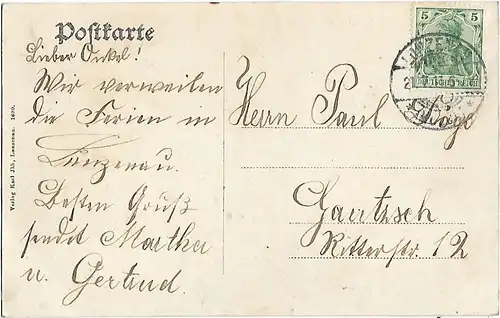 Postkarte
Lieber Onkel!
Wir verweilen
die Ferien in
Lunzenau.
Besten Gruß
sendet Martha
u. Gertrud.
Herrn Paul
Gautzsch
Ritterstr. 12
5 5
DEUTSCHES REICH
Verlag Karl Jäh, Lunzenau. 1609.